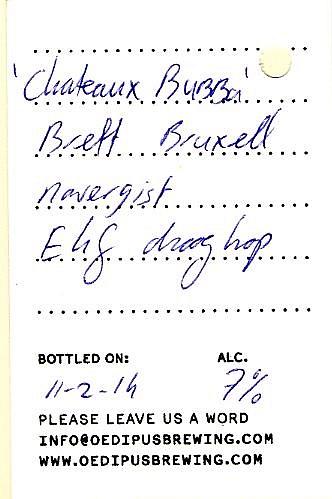 'Chateaux BUBBa'
Brett Bruxell
navergist
EKG drooghop
BOTTLED ON: ALC.
11-2-14 7%
PLEASE LEAVE US A WORD
INFO@OEDIPUSBREWING.COM
WWW.OEDIPUSBREWING.COM